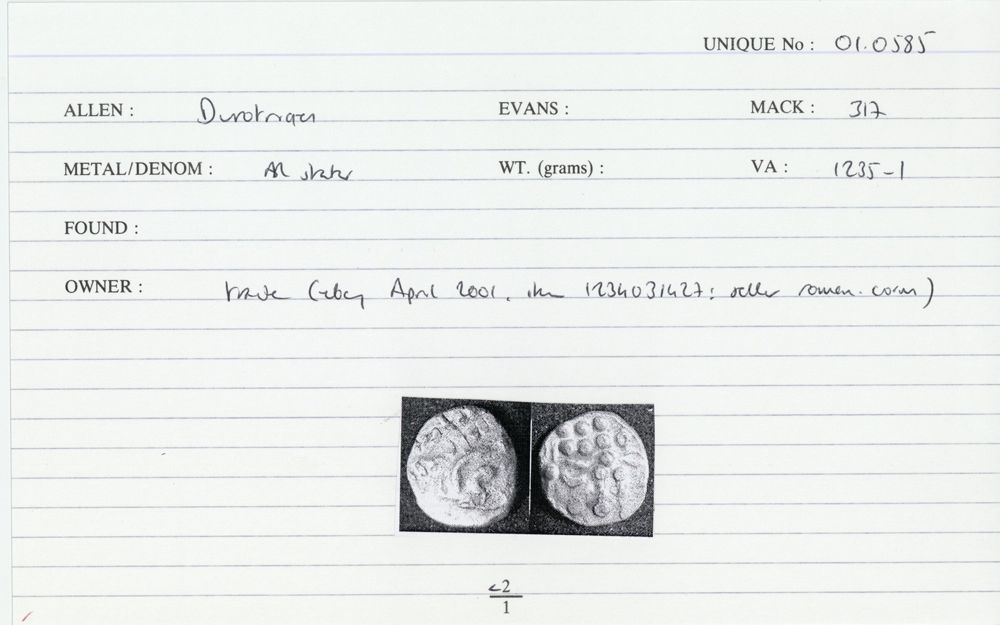 UNIQUE No : 01.0585
ALLEN : Durotrigan EVANS : MACK : 317
METAL/DENOM : AR stater WT. (grams) : VA : 1235-1
FOUND :
OWNER : trade (ebay April 2001, item 1234031427: seller roman.coins)
2
1